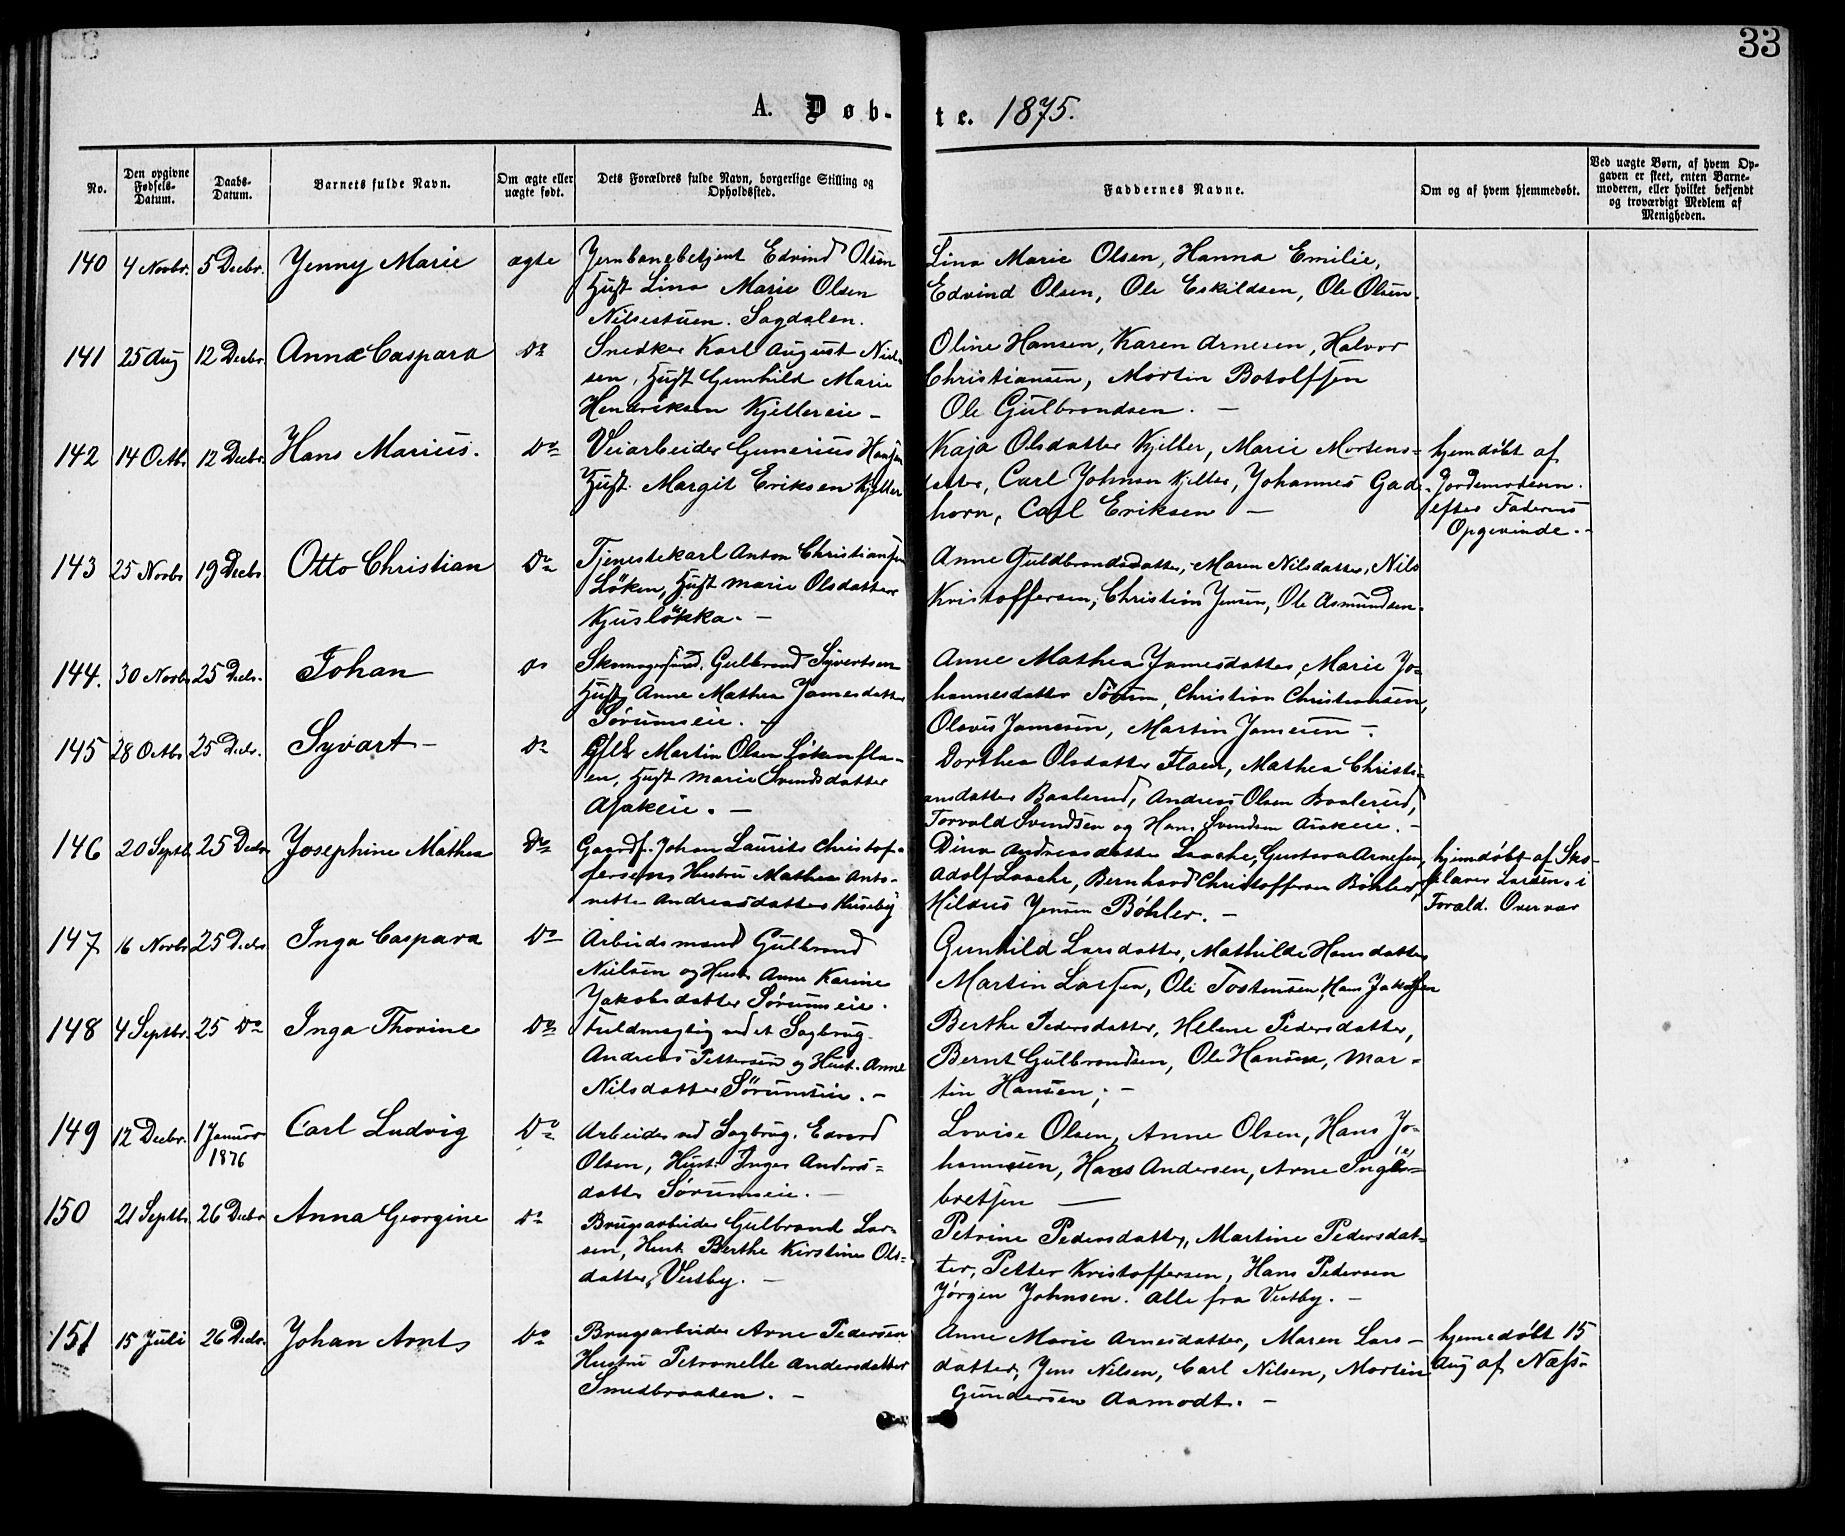 33
A. Døb- te. 1875.
No.
Den opgivne Fødsels-Datum.
Daabs-Datum.
Barnets fulde Navn.
Om ægte eller uægte født.
Dets Forældres fulde Navn, borgerlige Stilling og Opholdssted.
Faddernes Navne.
Om og af hvem hjemmedøbt.
Ved uægte Børn, af hvem Op-
gaven er skeet, enten Barne-
moderen, eller hvilket bekjendt
og troværdigt Medlem af
Menigheden.
140 4 Novbr. 5 Decbr. Jenny Marie ægte
Jernbanebetjent Edvind Olsen
Hust Lina Marie Olsen
Nilsestuen. Sagdalen.
Lina Marie Olsen, Hanna Emilie,
Edvind Olsen, Ole Eskildsen, Ole Olsen.
141 25 Aug 12 Decbr. Anna Caspara Do
Snedker Karl August Niel-
sen, Hust Gunhild Marie
Hendriksen Kjellereie -
Oline Hansen, Karen Arnesen, Halvor
Christiansen, Martin Botolfsen
Ole Gulbrandsen. -
142 14 Octbr. 12 Decbr. Hans Marius. Do
Veiarbeider Gunerius Hansen
Hust. Margit Eriksen Kjeller
Kaja Olsdatter Kjeller, Marie Mortens-
datter, Carl Johnsen Kjeller, Johannes Gad-
horn, Carl Eriksen -
hjemdøbt af
Jordemoderen
efter Faderens
Opgevinde. -
143 25 Novbr. 19 Decbr. Otto Christian Do
Tjenestekarl Anton Christiansen
Løken, Hust Marie Olsdatter
Kjusløkka. -
Anne Guldbrandsdatter, Maren Nilsdatter, Nils
Kristoffersen, Christian Jensen, Ole Asmundsen.
144. 30 Novbr. 25 Decbr. Johan Do
Gulbrand Syvertsen
Hust Anne Mathea Jamesdatter
Sørumseie. -
Anne Mathea Jamesdatter, Marie Jo-
hannesdatter Sørum, Christian Christiansen,
Olavus Jamesen, Martin Jamesen -
145 28 Octbr. 25 Decbr. Syvart - Do
Martin Olsen Løkenfla-
en, Hust Marie Svendsdatter
Asakeie. -
Dorthea Olsdatter Flaen, Mathea Christi-
ansdatter Baalerud, Andreas Olsen Baalerud,
Torvald Svendsen og Hans Svendsen Asakeie. -
146 20 Septb. 25 Decbr. Josephine Mathea Do
Gaardf. Johan Laurits Christof-
fersen, Hustru Mathea Anto-
nette Andreasdatter Huseby
Dina Andreasdatter Laache, Gustava Arnesen,
Adolf Laache, Bernhard Christoffersen Bøhler,
Hilaus Jensen Bøhler. -
hjemdøbt af Sko-
elærer Larsen i
Forald. Overvær
147 16 Novbr. 25 Decbr. Inga Caspara Do
Arbeidsmand Gulbrand
Nielsen og Hust. Anne Karine
Jakobsdatter Sørumseie.
Gunhild Larsdatter, Mathilde Hansdatter
Martin Larsen, Ole Tostensen, Hans Jakobsen
148 4 Septbr. 25 Do Inga Thorine Do
Fuldmægtig ved et Sagbrug.
Andreas Pettersen og Hust. Anne
Nilsdatter Sørumseie. -
Berthe Pedersdatter, Helene Pedersdatter,
Bernt Gulbrandsen, Ole Hansen, Mar-
tin Hansen; -
149 12 Decbr. 1 Januar 1876 Carl Ludvig Do
Arbeider ved Sagbrug. Edvard
Olsen, Hust. Inger Anders-
datter Sørumseie. -
Lovise Olsen, Anne Olsen, Hans Jo-
hannesen, Hans Andersen, Arne Inge-
bretsen -
150 21 Septbr. 26 Decbr Anna Georgine Do
Brugsarbeider Gulbrand Lar-
sen, Hust. Berthe Kirstine Ols-
datter, Vestby. -
Petrine Pedersdatter, Martine Pedersdat-
ter, Petter Kristoffersen, Hans Pedersen
Jørgen Johnsen. Alle fra Vestby. -
151 15 Juli 26 Decbr. Johan Arnt Do
Brugsarbeider Arne Pedersen
Hustru Petronelle Andersdatter
Smedbraaten. -
Anne Marie Arnesdatter, Maren Lars-
datter, Jens Nilsen, Carl Nilsen, Martin
Gundersen Aamodt. -
hjemedøbt 15
Aug af Næss-